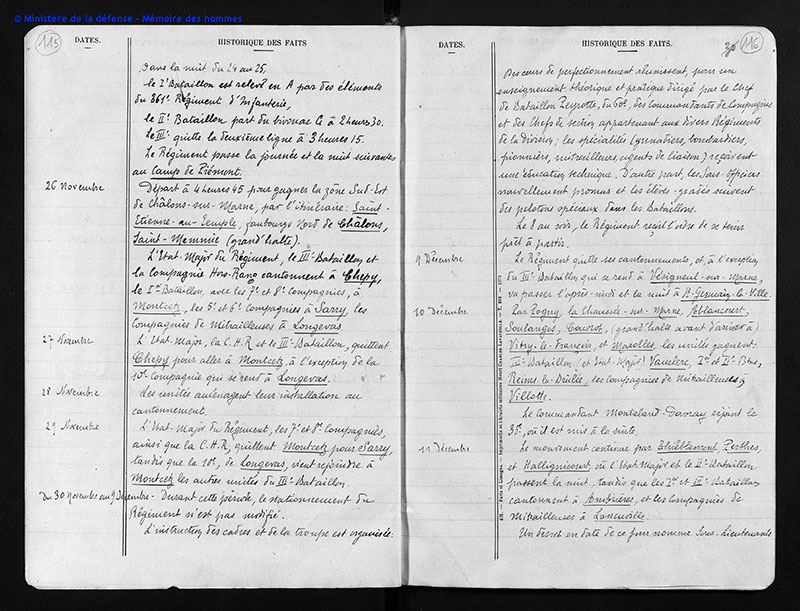 © Ministère de la défense - Mémoire des hommes
115
DATES.
HISTORIQUE DES FAITS
Dans la nuit du 24 au 25,
le Iᵉʳ Bataillon est relevé en A par des éléments
du 361ᵉ Régiment d'Infanterie,
le IIᵉ Bataillon part du bivouac C à 2 heures 30.
Le IIIᵉ quitte la deuxième ligne à 3 heures 15.
Le Régiment passe la journée et la nuit suivantes
au Camp de Piémont.
26 Novembre
Départ à 4 heures 45 pour gagner la zône Sud-Est
de Châlons-sur-Marne, par l'itinéraire: Saint-
Etienne-au-Temple, faubourgs Nord de Châlons,
Saint-Memmie (grand'halte).
L'Etat-Major du Régiment, le IIIᵉ Bataillon et
la compagnie Hors-Rang cantonnent à Chepy,
le Iᵉʳ Bataillon, avec les 7ᵉ et 8ᵉ Compagnies, à
Montcetz, les 5ᵉ et 6ᵉ Compagnies à Sarry, les
Compagnies de Mitrailleuses à Longevas.
27 Novembre
L'Etat-Major, la C.H.R et le IIIᵉ Bataillon, quittent
Chepy pour aller à Montcetz à l'exception de la
10ᵉ Compagnie qui se rend à Longevas.
28 Novembre
Les unités aménagent leur installation au
cantonnement.
29 Novembre
L'Etat-Major du Régiment, les 7ᵉ et 8ᵉ Compagnies,
ainsi que la C.H.R, quittent Montcetz pour Sarry,
tandis que la 10ᵉ, de Longevas, vient rejoindre à
Montcetz les autres unités du IIIᵉ Bataillon.
Du 30 Novembre au 9 Décembre - Durant cette période, le stationnement du
Régiment n'est pas modifié.
L'instruction des cadres et de la troupe est organisée:
116
DATES.
HISTORIQUE DES FAITS.
Des cours de perfectionnement réunissent, pour un
enseignement théorique et pratique dirigé par le Chef
de Bataillon Peyrotte, du 60ᵉ, des Commandants de Compagnie
et des Chefs de section appartenant aux divers Régiments
de la division; les spécialités (grenadiers, bombardiers,
pionniers, mitrailleurs, agents de liaison) reçoivent
une éducation technique. D'autre part, les Sous-Officiers
nouvellement promus et les élèves-gradés suivent
des pelotons spéciaux dans les Bataillons.
Le 8 au soir, le Régiment reçoit l'ordre de se tenir
prêt à partir.
9 Décembre
Le Régiment quitte ses cantonnements, et, à l'exception
du IIIᵉ Bataillon qui se rend à Vésigneul-sur-Marne,
va passer l'après-midi et la nuit à St Germain-la-Ville.
10 Décembre
Par Pogny, la Chaussée-sur-Marne, Ablancourt,
Soulanges, Couvrot, (grand'halte avant d'arriver à)
Vitry-le-François, et Marolles, les unités gagnent:
IIIᵉ Bataillon (et Etat-Major) Vauclerc, Iᵉʳ et IIᵉ Btns,
Reims-la-Brûlée, les Compagnies de mitrailleuses,
Villotte.
Le Commandant rejoint le
35ᵉ, où il est mis à la suite.
11 Décembre
Le mouvement continue par Thiéblemont, Perthes,
et Hallignicourt où l'Etat-Major et le IIᵉ Bataillon
passent la nuit, tandis que les Iᵉʳ et IIIᵉ Bataillons
cantonnent à Ambrières, et les Compagnies de
Mitrailleuses à Laneuville.
Un décret en date de ce jour nomme Sous-Lieutenants